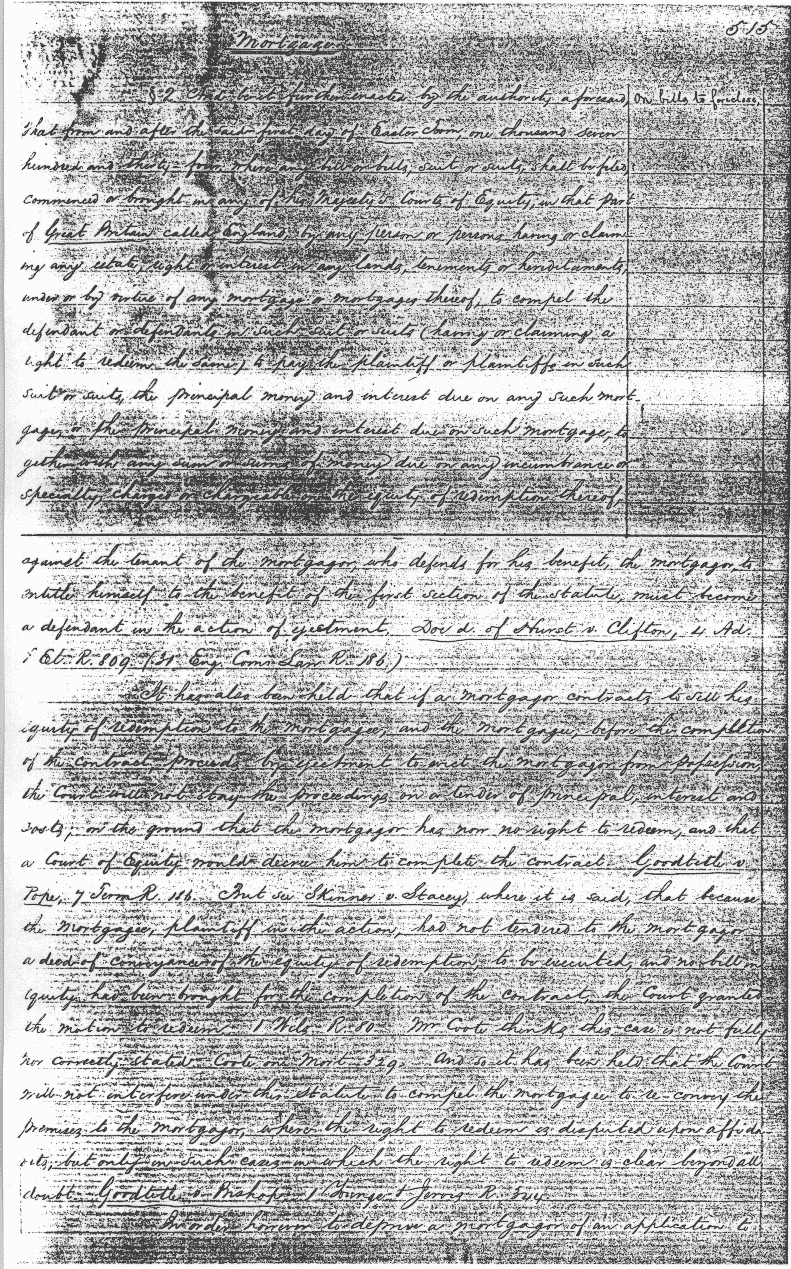 515
Mortgage
§ 2. And be it further enacted by the authority aforesaid,
On bills to foreclose.
That from and after the said first day of Easter Term, one thousand seven
hundred and thirty-four, where any bill or bills, suit or suits, shall be filed,
commenced or brought in any of his Majesty's Courts of Equity, in that part
of Great Britain called England, by any person or persons having or claim-
ing any estate, right or interest in any lands, tenements or hereditaments,
under or by virtue of any mortgage or mortgages thereof, to compel the
defendant or defendants in such suit or suits (having or claiming a
right to redeem the same) to pay the plaintiff or plaintiffs in such
suit or suits, the principal money and interest due on any such mort-
gage, or the principal money and interest due on such mortgage, to
gether with any sum or sums of money due on any incumbrance or
specialty, charged or chargeable on the equity of redemption thereof,
against the tenant of the mortgagor, who defends for his benefit, the mortgagor, to
intitle himself to the benefit of the first section of the statute, must become
a defendant in the action of ejectment. Doe d. of Hurst v. Clifton, 4 Ad.
& Ell. R. 809 (31 Eng. Com. Law R. 186.)
It has also been held that if a mortgagor contracts to sell his
equity of redemption to the mortgagee, and the mortgagee, before the completion
of the contract proceeds by ejectment to evict the mortgagor from possession,
the Court will not stay the proceedings on a tender of principal, interest and
costs; on the ground that the mortgagor has now no right to redeem, and that
a Court of Equity would decree him to complete the contract. Goodtitle v.
Pope, 7 Term R. 186. But see Skinner v. Stacey, where it is said, that because
the mortgagee, plaintiff in the action, had not tendered to the mortgagor
a deed of conveyance of the equity of redemption to be executed, and no bill in
equity had been brought for the completion of the contract, the Court granted
the motion to redeem. 1 Wils. R. 80. Mr Coote thinks this case is not fully
nor correctly stated. Coote on Mort. 329. And so it has been held that the Court
will not interfere under this statute to compel the mortgagee to re-convey the
premises to the mortgagor, where the right to redeem is disputed upon affida
vits, but only in such cases in which the right to redeem is clear beyond all
doubt. Goodtitle v. Bishop, 1 Younge & Jervis R. 344.
In order however to deprive a mortgagor of an application to